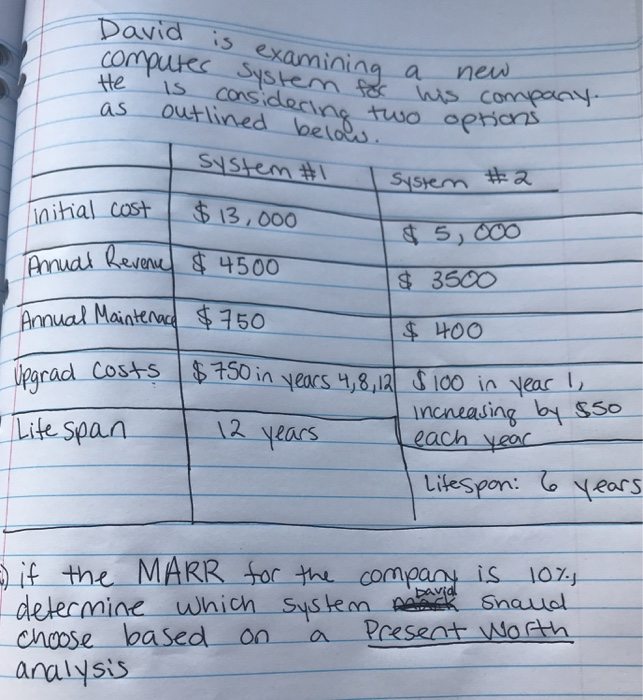 David is examining a new
computer system for his company.
He is considering two options
as outlined below.
System #1 System #2
initial cost $13,000 $5,000
Annual Revenue $4500 $3500
Annual Maintenace $750 $400
Upgrad Costs $750 in years 4,8,12 $100 in year 1,
increasing by $50
each year
Life span 12 years
Lifespan: 6 years
if the MARR for the company is 10%,
determine which system David should
choose based on a Present Worth
analysis